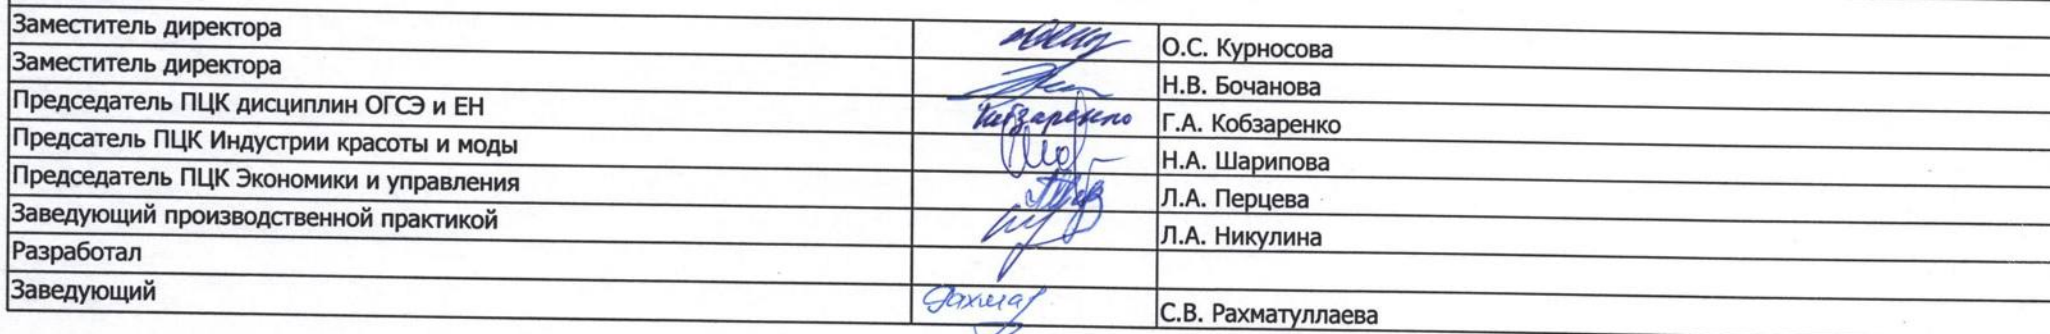 Заместитель директора О.С. Курносова
Заместитель директора Н.В. Бочанова
Председатель ПЦК дисциплин ОГСЭ и ЕН Кобзаренко Г.А. Кобзаренко
Предсатель ПЦК Индустрии красоты и моды Н.А. Шарипова
Председатель ПЦК Экономики и управления Л.А. Перцева
Заведующий производственной практикой Л.А. Никулина
Разработал
Заведующий С.В. Рахматуллаева